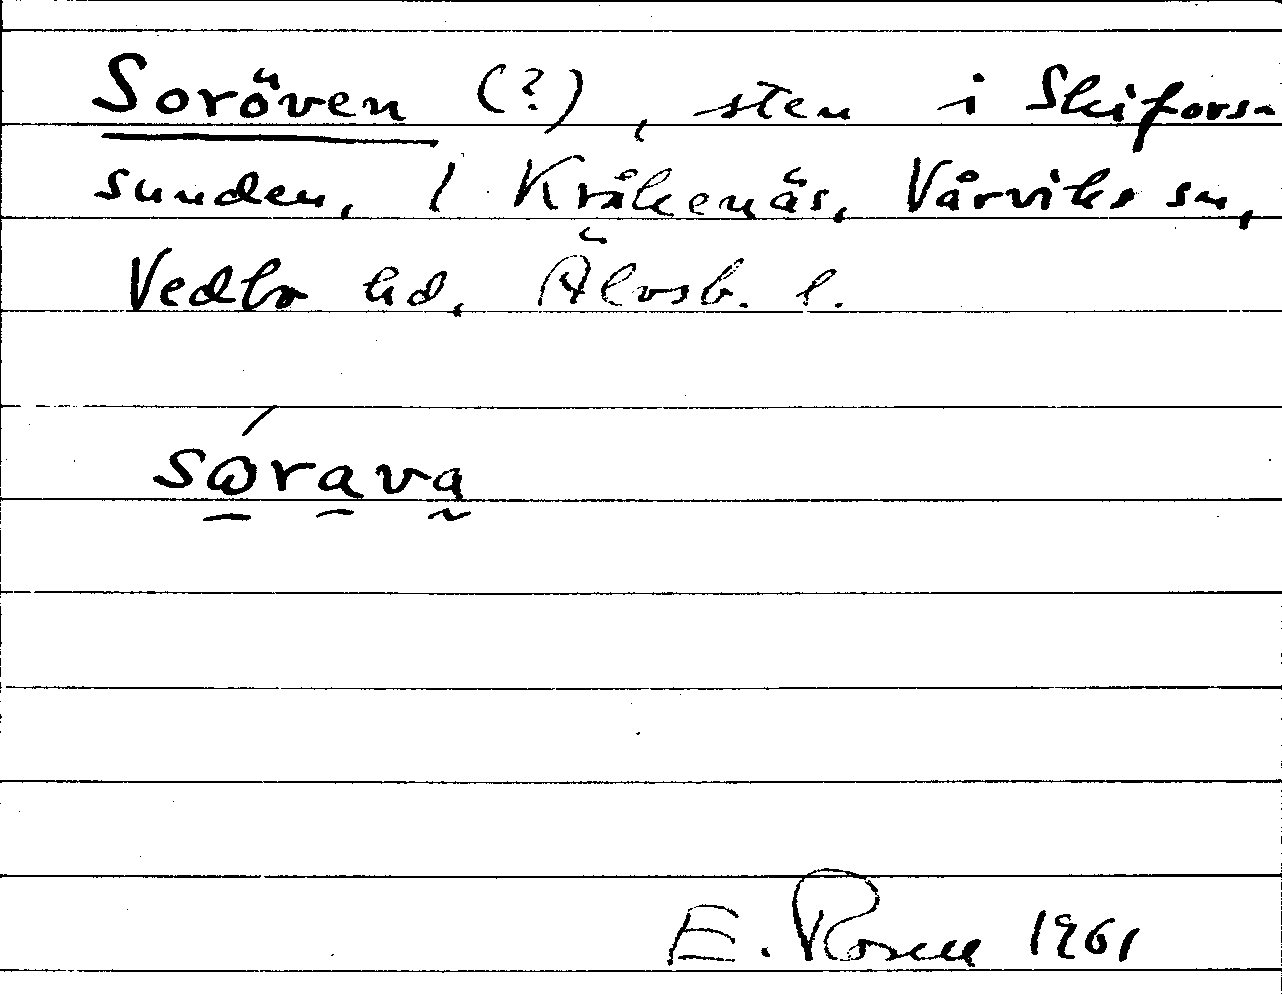 Soröven (?), sten i Skifors-
sunden, 1 Kråkenäs, Vårviks sn,
Vedbo hd, Älvsb. l.
sørava
E. Rosell 1961